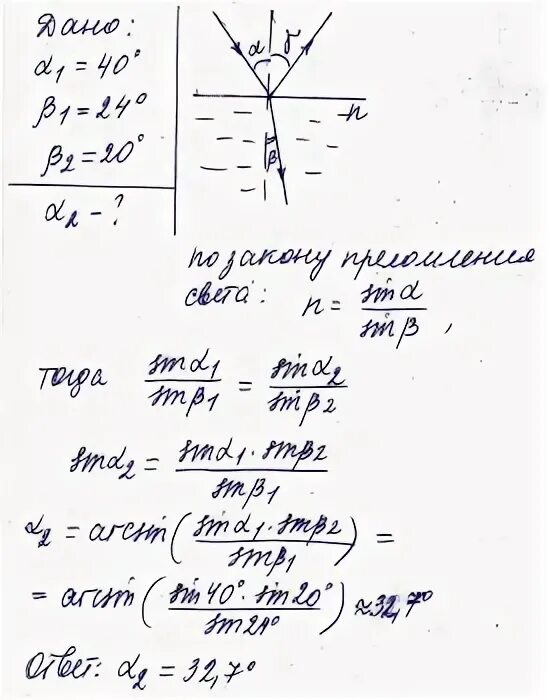 Дано:
α1 = 40°
β1 = 24°
β2 = 20°
α2 - ?
α γ
n
β
по закону преломления
света: n = sinα / sinβ ,
тогда sinα1 / sinβ1 = sinα2 / sinβ2
sinα2 = sinα1 · sinβ2 / sinβ1
α2 = arcsin( sinα1 · sinβ2 / sinβ1 ) =
= arcsin( sin40° · sin20° / sin24° ) ≈ 32,7°
Ответ: α2 = 32,7°